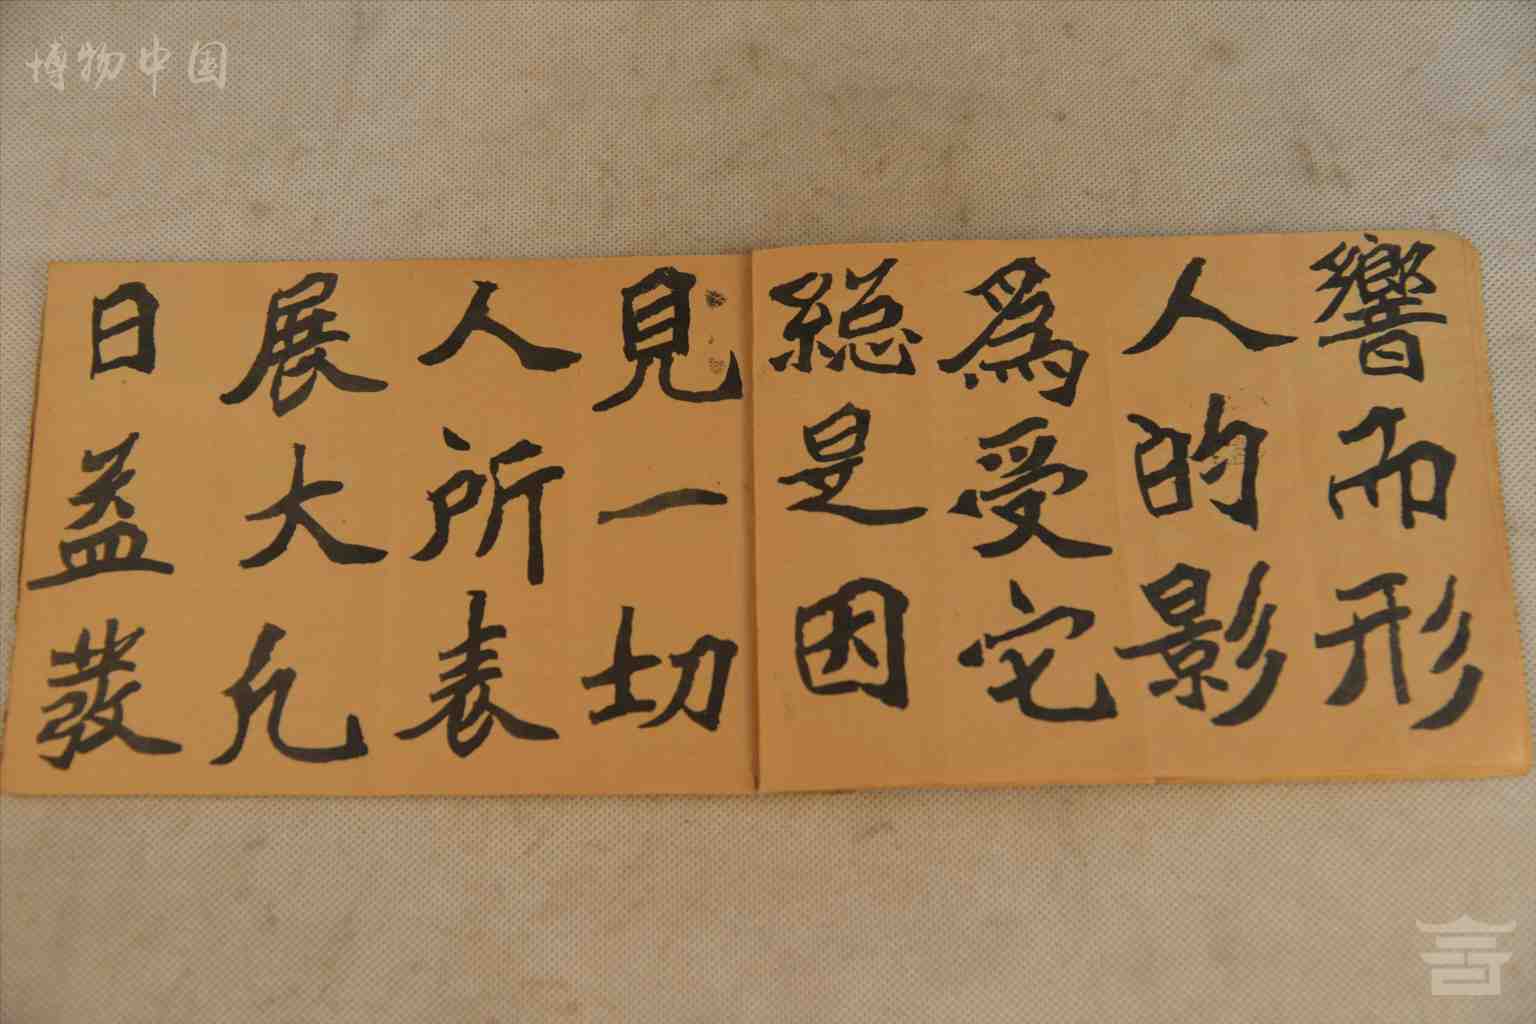 博物中国
響而形
人的影
為受它
総是因
見一切
人所表
展大凡
日益發